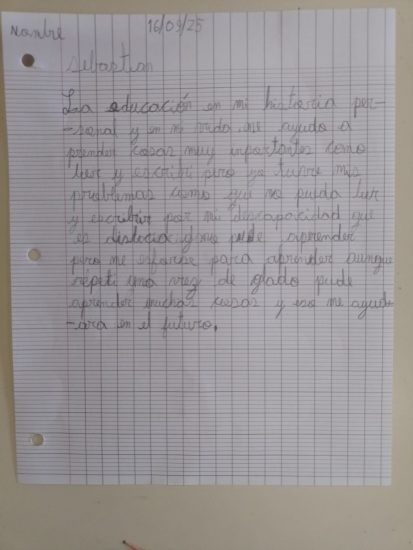 Nombre 16/09/25
Sebastian
La educación en mi historia per-
-sonal y en mi vida me ayudo a
prender cosas muy inportantes como
leer y escribir pero yo tuve mis
problemas como que no pueda ler
y escribir por mi descapacidad que
es dislocia y no pude aprender
pero me esforse para aprender aunque
répeti una vez de grado pude
aprender muchas cosas y eso me ayud-
-ara en el futuro.